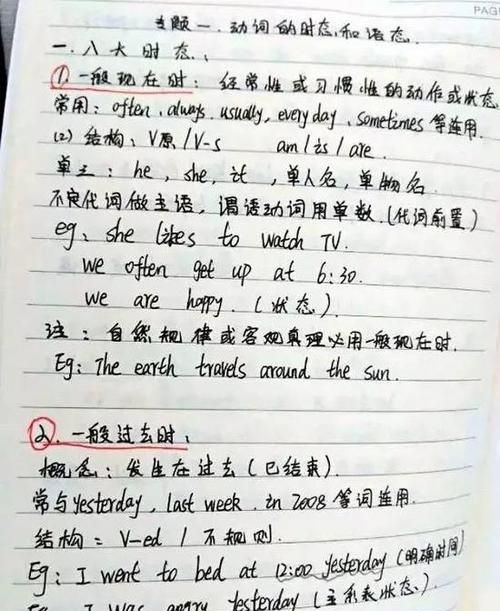 PAG
专题一.动词的时态和语态.
一.八大时态:
1.一般现在时:经常性或习惯性的动作或状态
常用:often,always,usually,everyday,sometimes等连用.
(2)结构:V原/V-s am/is/are.
单三:he,she,it,单人名,单物名.
不定代词做主语,谓语动词用单数.(代词前置)
eg:she likes to watch TV.
we often get up at 6:30.
we are happy.(状态)
注:自然规律或客观真理必用一般现在时.
Eg:The earth travels around the sun.
2.一般过去时:
概念:发生在过去(已结束).
常与yesterday,last week.in 2008等词连用.
结构=V-ed/不规则.
Eg:I went to bed at 12:00 yesterday(明确时间)
I was angry yesterday(主系表状态).